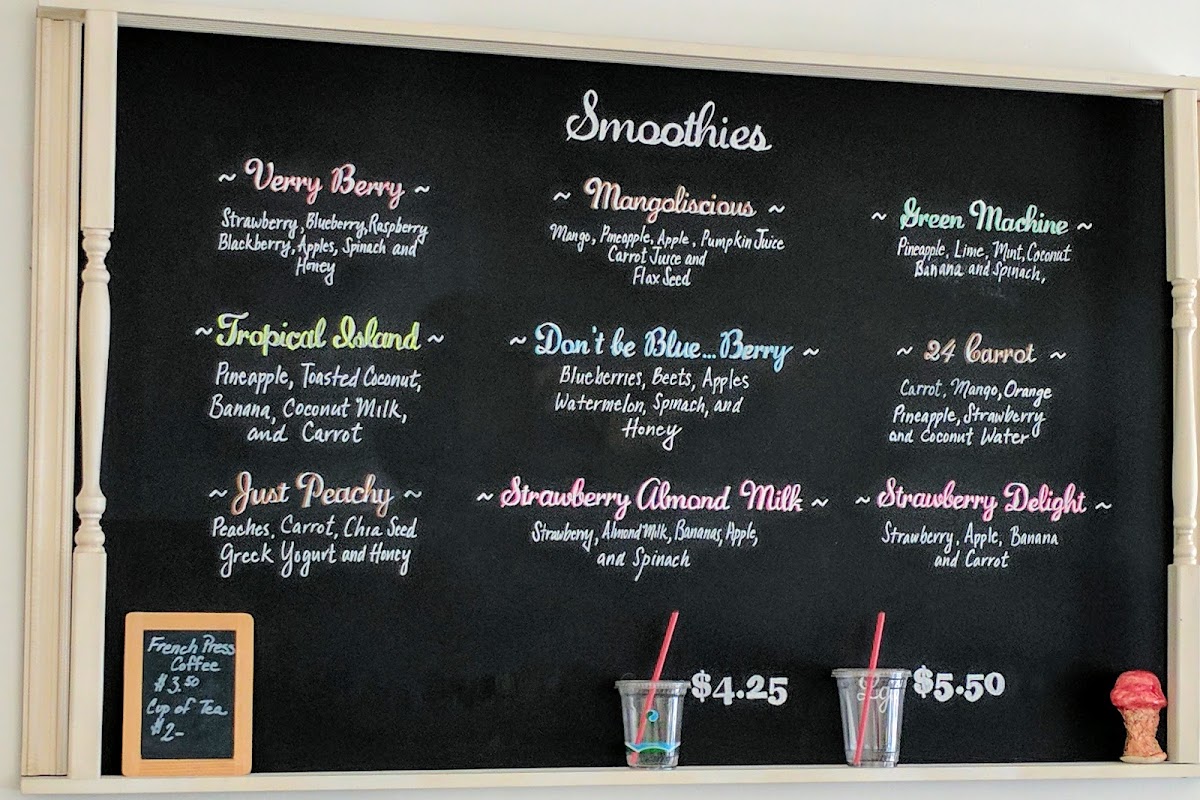 Smoothies
~ Verry Berry ~
Strawberry, Blueberry, Raspberry
Blackberry, Apples, Spinach and
Honey
~ Mangoliscious ~
Mango, Pineapple, Apple, Pumpkin Juice
Carrot Juice and
Flax Seed
~ Green Machine ~
Pineapple, Lime, Mint, Coconut
Banana and Spinach,
~ Tropical Island ~
Pineapple, Toasted Coconut,
Banana, Coconut Milk,
and Carrot
~ Don't be Blue...Berry ~
Blueberries, Beets, Apples
Watermelon, Spinach, and
Honey
~ 24 Carrot ~
Carrot, Mango, Orange
Pineapple, Strawberry
and Coconut Water
~ Just Peachy ~
Peaches, Carrot, Chia Seed
Greek Yogurt and Honey
~ Strawberry Almond Milk ~
Strawberry, Almond Milk, Bananas, Apple,
and Spinach
~ Strawberry Delight ~
Strawberry, Apple, Banana
and Carrot
French Press
Coffee
$3.50
Cup of Tea
$2-
$4.25
Lg
$5.50